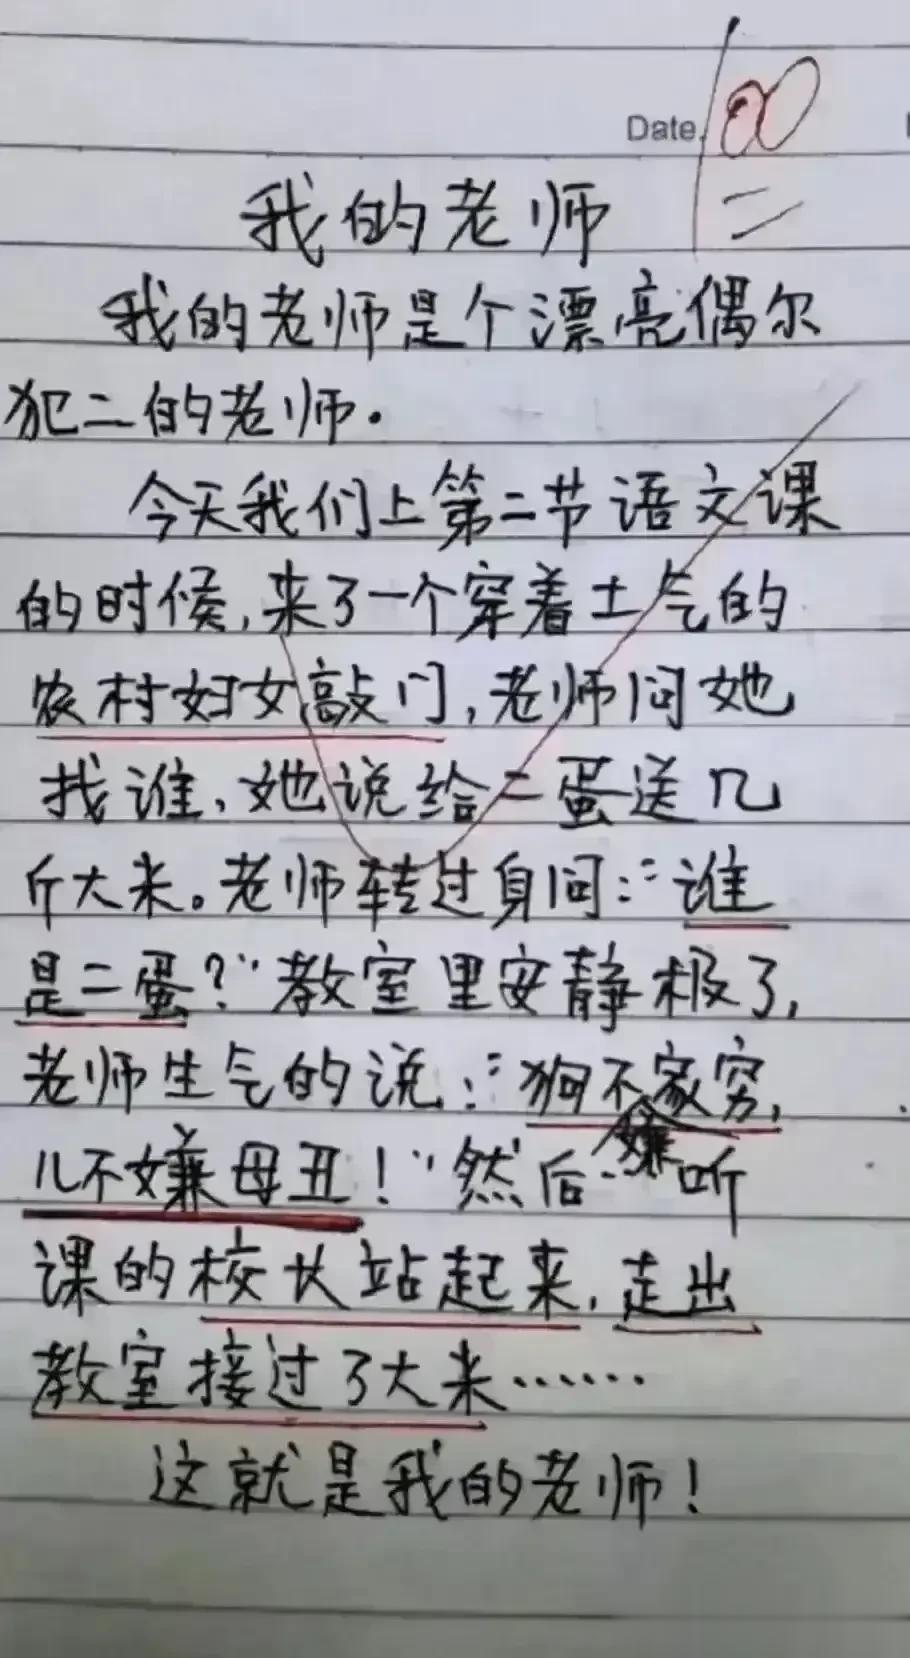 Date.
100
我的老师
我的老师是个漂亮偶尔
犯二的老师.
今天我们上第二节语文课
的时候,来了一个穿着土气的
农村妇女敲门,老师问她
找谁,她说给二蛋送几
斤大米。老师转过身问:“谁
是二蛋?”教室里安静极了,
老师生气的说:“狗不嫌家穷,
儿不嫌母丑!”然后听
课的校长站起来,走出
教室接过了大米……
这就是我的老师!